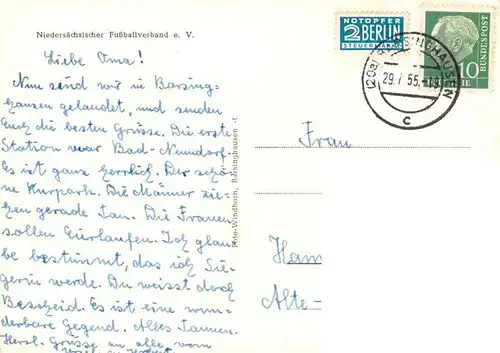 Niedersächsischer Fußballverband e. V.
Liebe Oma!
Nun sind wir in Barsing-
hausen gelandet, und senden
Euch die besten Grüsse. Die erste
Station war Bad-Nenndorf.
Es ist ganz herrlich. Der schö-
ne Kurpark. Die Männer zie-
hen gerade Tau. Die Frauen
sollen Eierlaufen. Ich glau-
be bestimmt, das ich Sie-
gerin werde. Du weisst doch
Bescheid. Es ist eine wun-
derbare Gegend. Alles Tannen.
Herzl. Grüsse an alle, vom
Foto-Windhorn, Barsinghausen
NOTOPFER
2 BERLIN
STEUERMARKE
DEUTSCHE BUNDESPOST
10
(20a) BARSINGHAUSEN
29.7.55.-19
c
Frau
Ham
Alte-